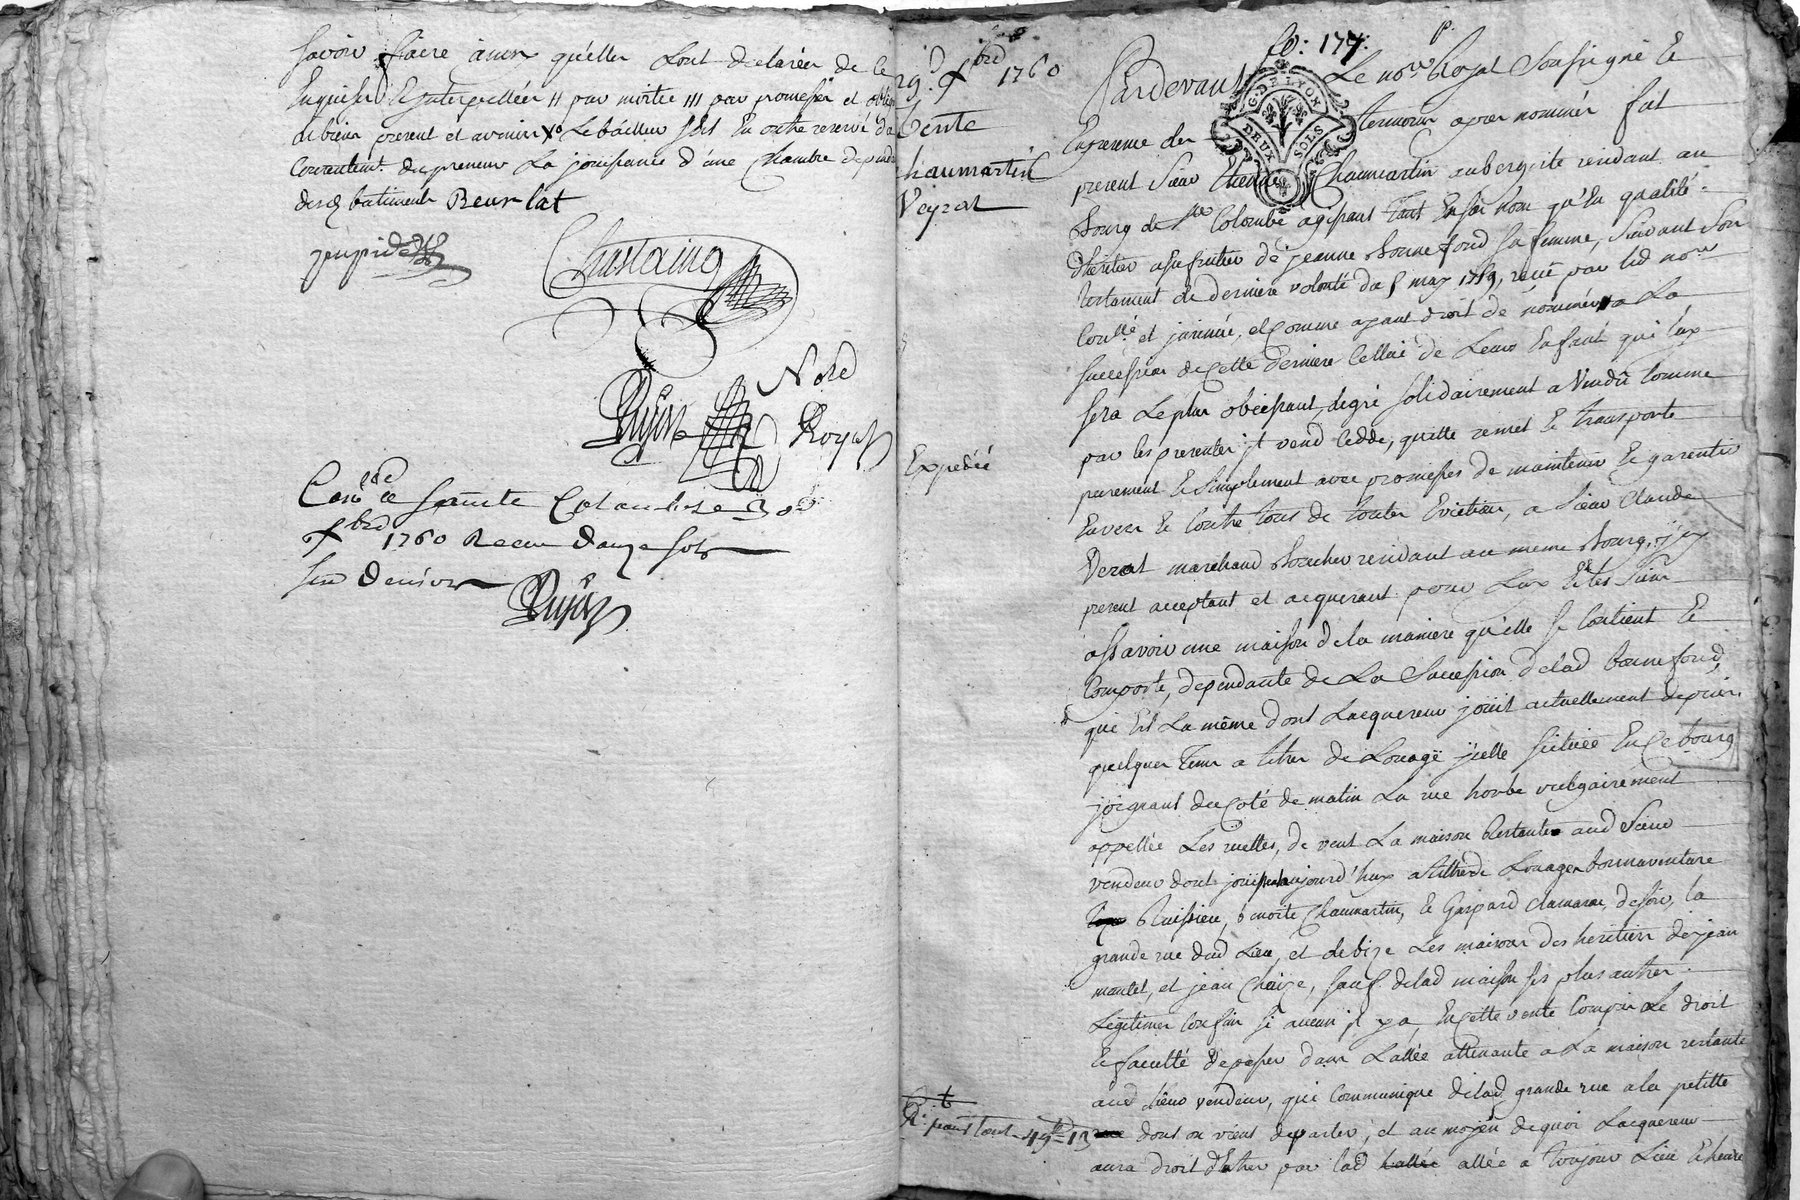 Savoir faire ainsy qu'elles l'ont declarées de ce
Enquises Et interpellées // par moitié /// par promesses et oblig
de biens present et avenir Le bailleur s'est En outre reservé du
Consentemt. du preneur La jouissance d'une Chambre dependt
desd batiments
Chastaing
Dujon Note Royal
Conlé a Sainte Colombe le 30e
xbre 1760 Recu Douze sols
six Deniers
Dujon
19. xbre 1760
Vente
Chaumartin
Veyrat
Expediée
fo: 177.
G. DE LYON
DEUX SOLS
Pardevant Le nore Royal Soussigné Et
En presence des temoins apres nommés fut
present Sieur Etienne Chaumartin aubergiste residant au
Bourg de Ste Colombe agissant Tant En son nom qu'En qualité
D'heritier usufruitier de jeanne Bonnefond sa femme, Suivant Son
testament de derniere volonté du 5 may 1759, reçu par led nore
Conllé et insinué, et Comme ayant droit de nommer a La
succession de Cette derniere Celluy de Leurs Enfants qui Luy
sera Le plus obeissant, degré solidairement a Vendû Comme
par les presentes jl vend Cedde, quitte remet Et transporte
purement Et simplement avec promesses de maintenir Et garentir
Envers Et Contre tous de toutes Evictions, a Sieur Claude
Verat marchand Boucher residant au meme Bourg, jcy
present acceptant et acquerant pour Luy Et les Siens
assavoir une maison de la maniere qu'elle se Contient Et
Comporte, dependante de La Succession de lad bonnefond,
qui Est La même dont Lacquereur jouit actuellement depuis
quelques Tems a titre de Louage jcelle scituée En Ce bourg
joignant du Coté de matin La rue horbe vulgairement
appellée Les ruelles, de vent La maison Restante aud Sieur
vendeur dont jouissent aujourd'huy a titre de Louage bonnaventure
Ruissieu, benoite Chaumartin, Et Gaspard Clamaron, de soir, la
grande rue dud Lieu, et de bize Les maisons des heritiers de jean
mantel, et jean Chaize, sauf de lad maison ses plus autres
Legitimes Confins si aucuns jl y a, En Cette vente Compris Le droit
Et faculté de passer dans L'allée attenante a La maison restante
aud Sieur vendeur, qui Communique de lad grande rue a la petitte
dont on vient de parler, et au moyen de quoi Lacquereur
aura droit d'Entrer par lad allée a toujours Lieu Et heure